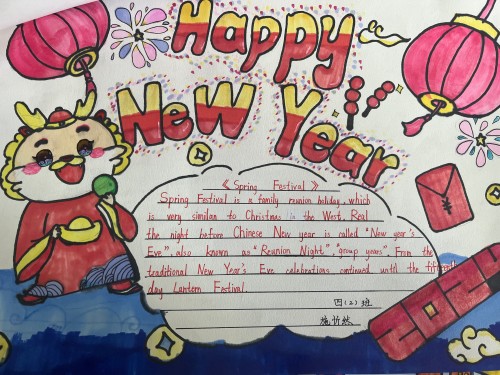 Happy
New Year
《Spring Festival》
Spring Festival is a family reunion holiday, which
is very similar to Christmas in the West. Real
the night before Chinese New year is called "New year's
Eve", also known as "Reunion Night", "group years". From the
traditional New Year's Eve celebrations continued until the fifteenth
day Lantern Festival.
四(2)班
施忻然